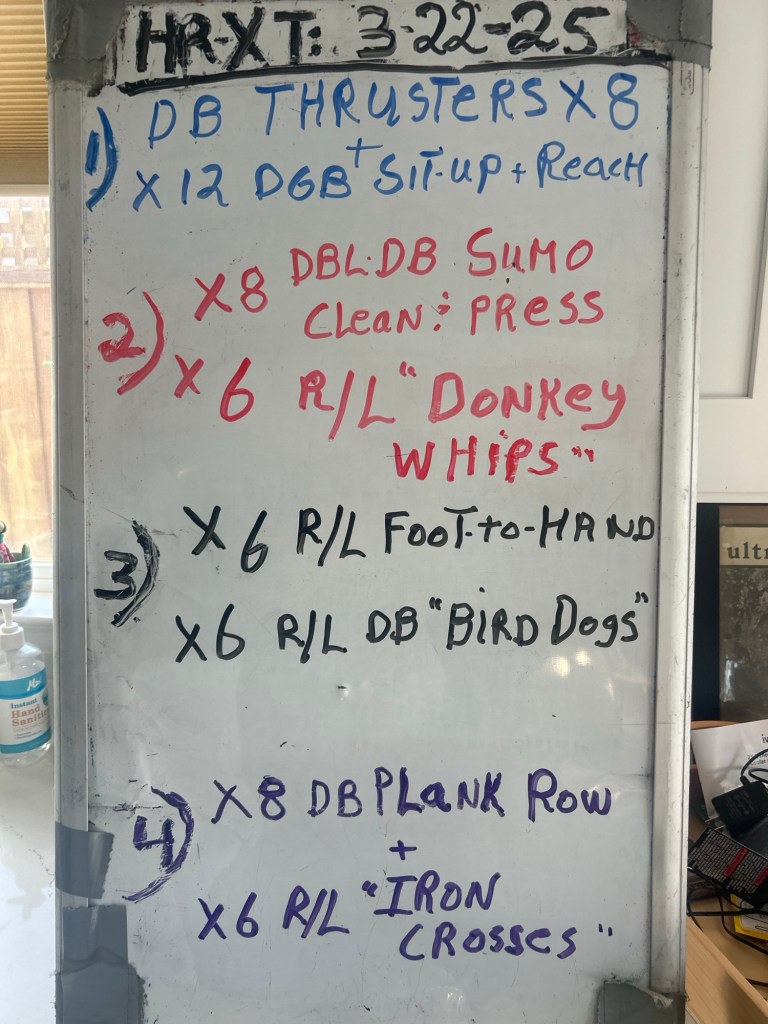 HR-XT: 3-22-25
1) DB THRUSTERS X 8
+
X 12 DGB SIT-UP + REACH
2) X8 DBL.DB SUMO
CLEAN & PRESS
X 6 R/L "DONKEY
WHIPS"
3) X 6 R/L FOOT-to-HAND
X6 R/L DB "BIRD DOGS"
4) X 8 DB PLANK ROW
+
X6 R/L "IRON
CROSSES"
ultr
Instant
Hand
Saniti